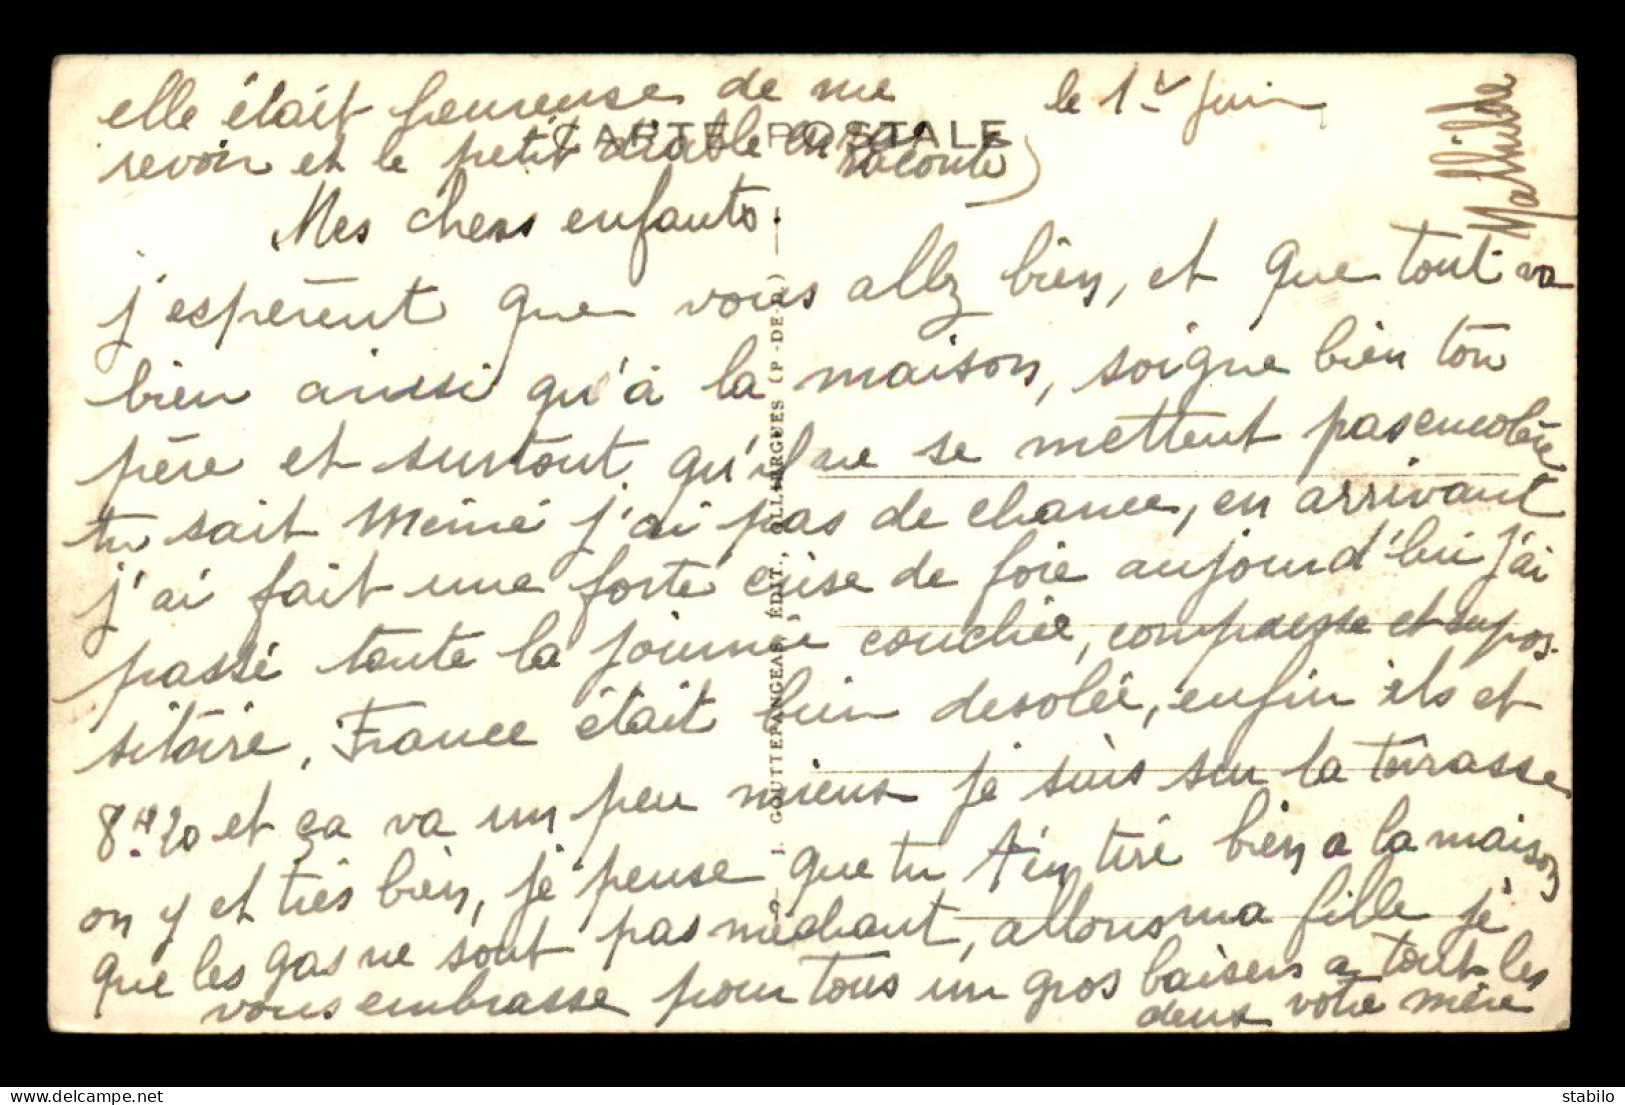 elle était heureuse de me
revoir et le petit diable en raconte)
CARTE POSTALE
le 1er Juin
Mathilde
Mes chers enfants
j'esperent que vous allez bien, et que tout va
bien aussi qu'à la maison, soigne bien ton
père et surtout qu'il ne se mettent pas en colère
tu sait Mémé j'ai pas de chance, en arrivant
j'ai fait une forte crise de foie aujourd'hui j'ai
passé toute la journée couchée, compresse et suppos-
sitaire, France était bien desolée, enfin ils et
8H20 et ça va un peu mieux je suis sur la terrasse
on y et très bien, je pense que tu t'en tire bien a la maison
que les gas ne sont pas méchant, allons ma fille je
vous embrasse pour tous un gros baisers a tout les
deux votre mère
J. GOUTTEFANGEAS, ÉDIT., OLLIERGUES (P.-DE-D.)